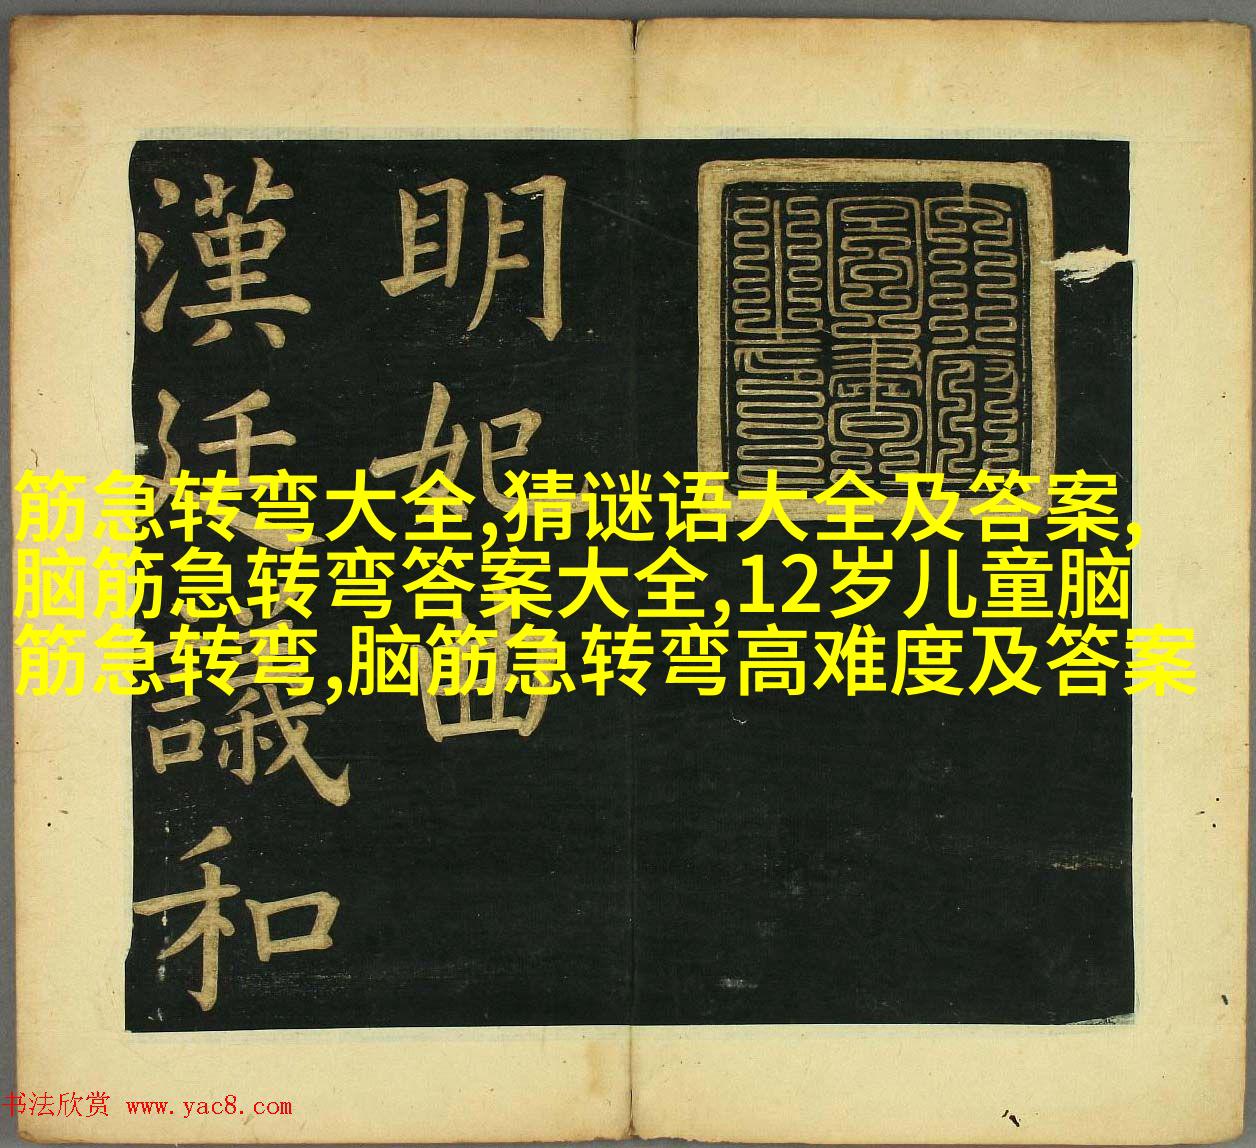 眀妃曲
漢廷議和
筋急转弯大全,猜谜语大全及答案,
脑筋急转弯答案大全,12岁儿童脑
筋急转弯,脑筋急转弯高难度及答案
书法欣赏 www.yac8.com